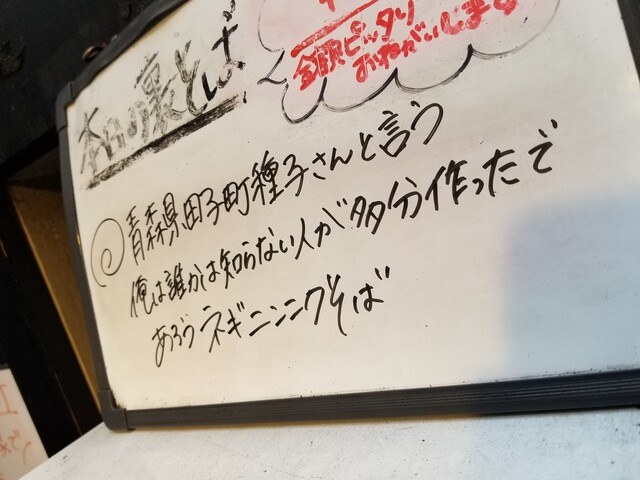 本日の裏そば
金額ピッタリ
おねがいします
青森県田子町種子さんと言う
俺は誰かは知らない人が多分作ったで
あろうネギニンニクそば